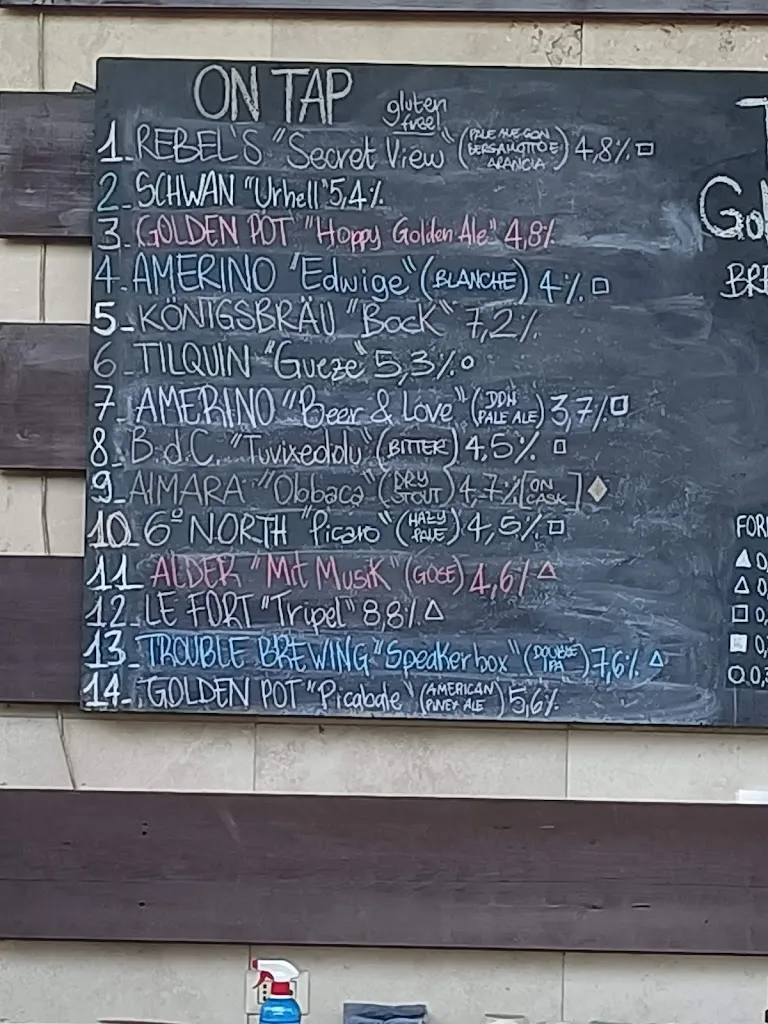 ON TAP
gluten free!
1. REBEL'S "Secret View" (PALE ALE CON BERGAMOTTO E ARANCIA) 4,8% □
2_ SCHWAN "Urhell" 5,4%
3_ GOLDEN POT "Hoppy Golden Ale" 4,8%
4_ AMERINO "Edwige" (BLANCHE) 4% □
5_ KÖNIGSBRÄU "Bock" 7,2%
6_ TILQUIN "Gueze" 5,3% ○
7_ AMERINO "Beer & Love" (DDH PALE ALE) 3,7% □
8_ B.d.C. "Tuvixeddu" (BITTER) 4,5% □
9_ AIMARA "Obbaca" (DRY STOUT) 4,7% [ON CASK] ◆
10_ 6° NORTH "Picaro" (HAZY PALE) 4,5% □
11_ ALDER "Mit Musik" (GOSE) 4,6% △
12_ LE FORT "Tripel" 8,8% △
13_ TROUBLE BREWING "Speakerbox" (DOUBLE IPA) 7,6% △
14_ GOLDEN POT "Picabale" (AMERICAN PINEY ALE) 5,6%
T
Gol
BRE
FOR
▲ 0,
△ 0,
□ 0,
■ 0,
○ 0,